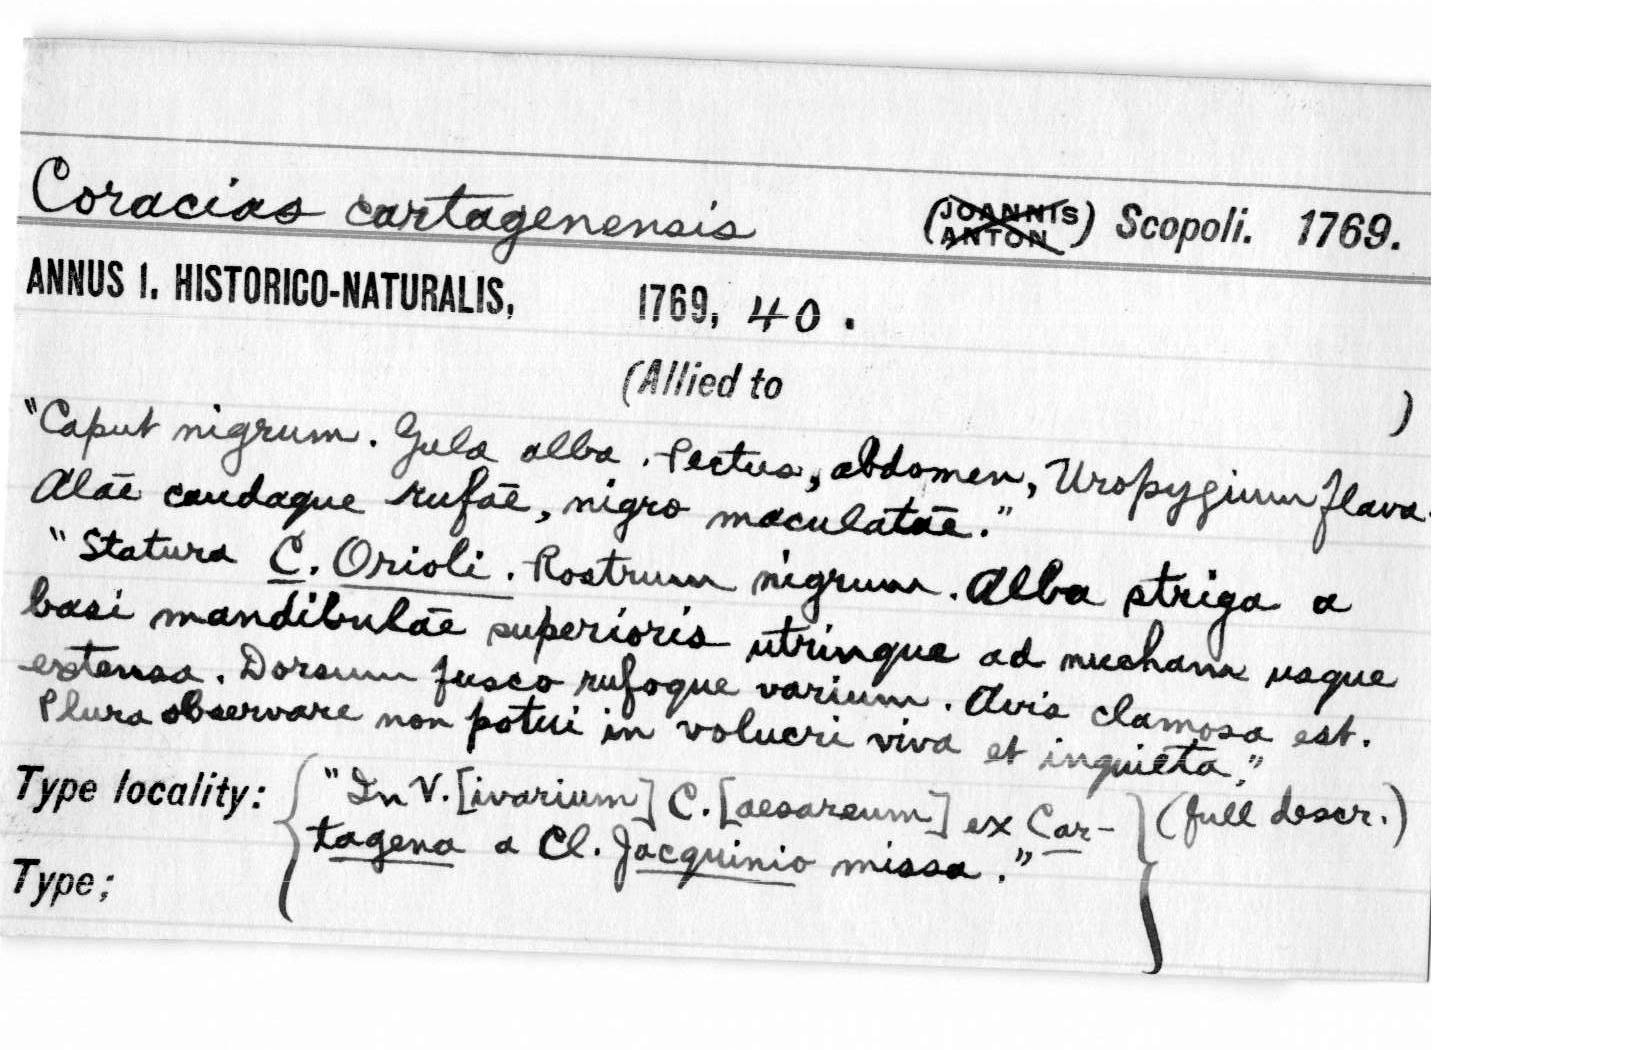 Coracias cartagenensis (JOANNIS ANTON) Scopoli. 1769.
ANNUS I. HISTORICO-NATURALIS, 1769, 40.
(Allied to )
"Caput nigrum. Gula alba. Pectus, abdomen, Uropygium flava.
Alāē caudaque rufāē, nigro maculatāē."
"Statura C. Orioli. Rostrum nigrum. Alba striga a
basi mandibulāē superioris utrinque ad nucham usque
extensa. Dorsum fusco rufoque varium. Avis clamosa est.
Plura observare non potui in volucri viva et inquieta."
Type locality: { "In V.[ivarium] C.[aesareum] ex Car- } (full descr.)
tagena a Cl. Jacquinio missa."
Type;